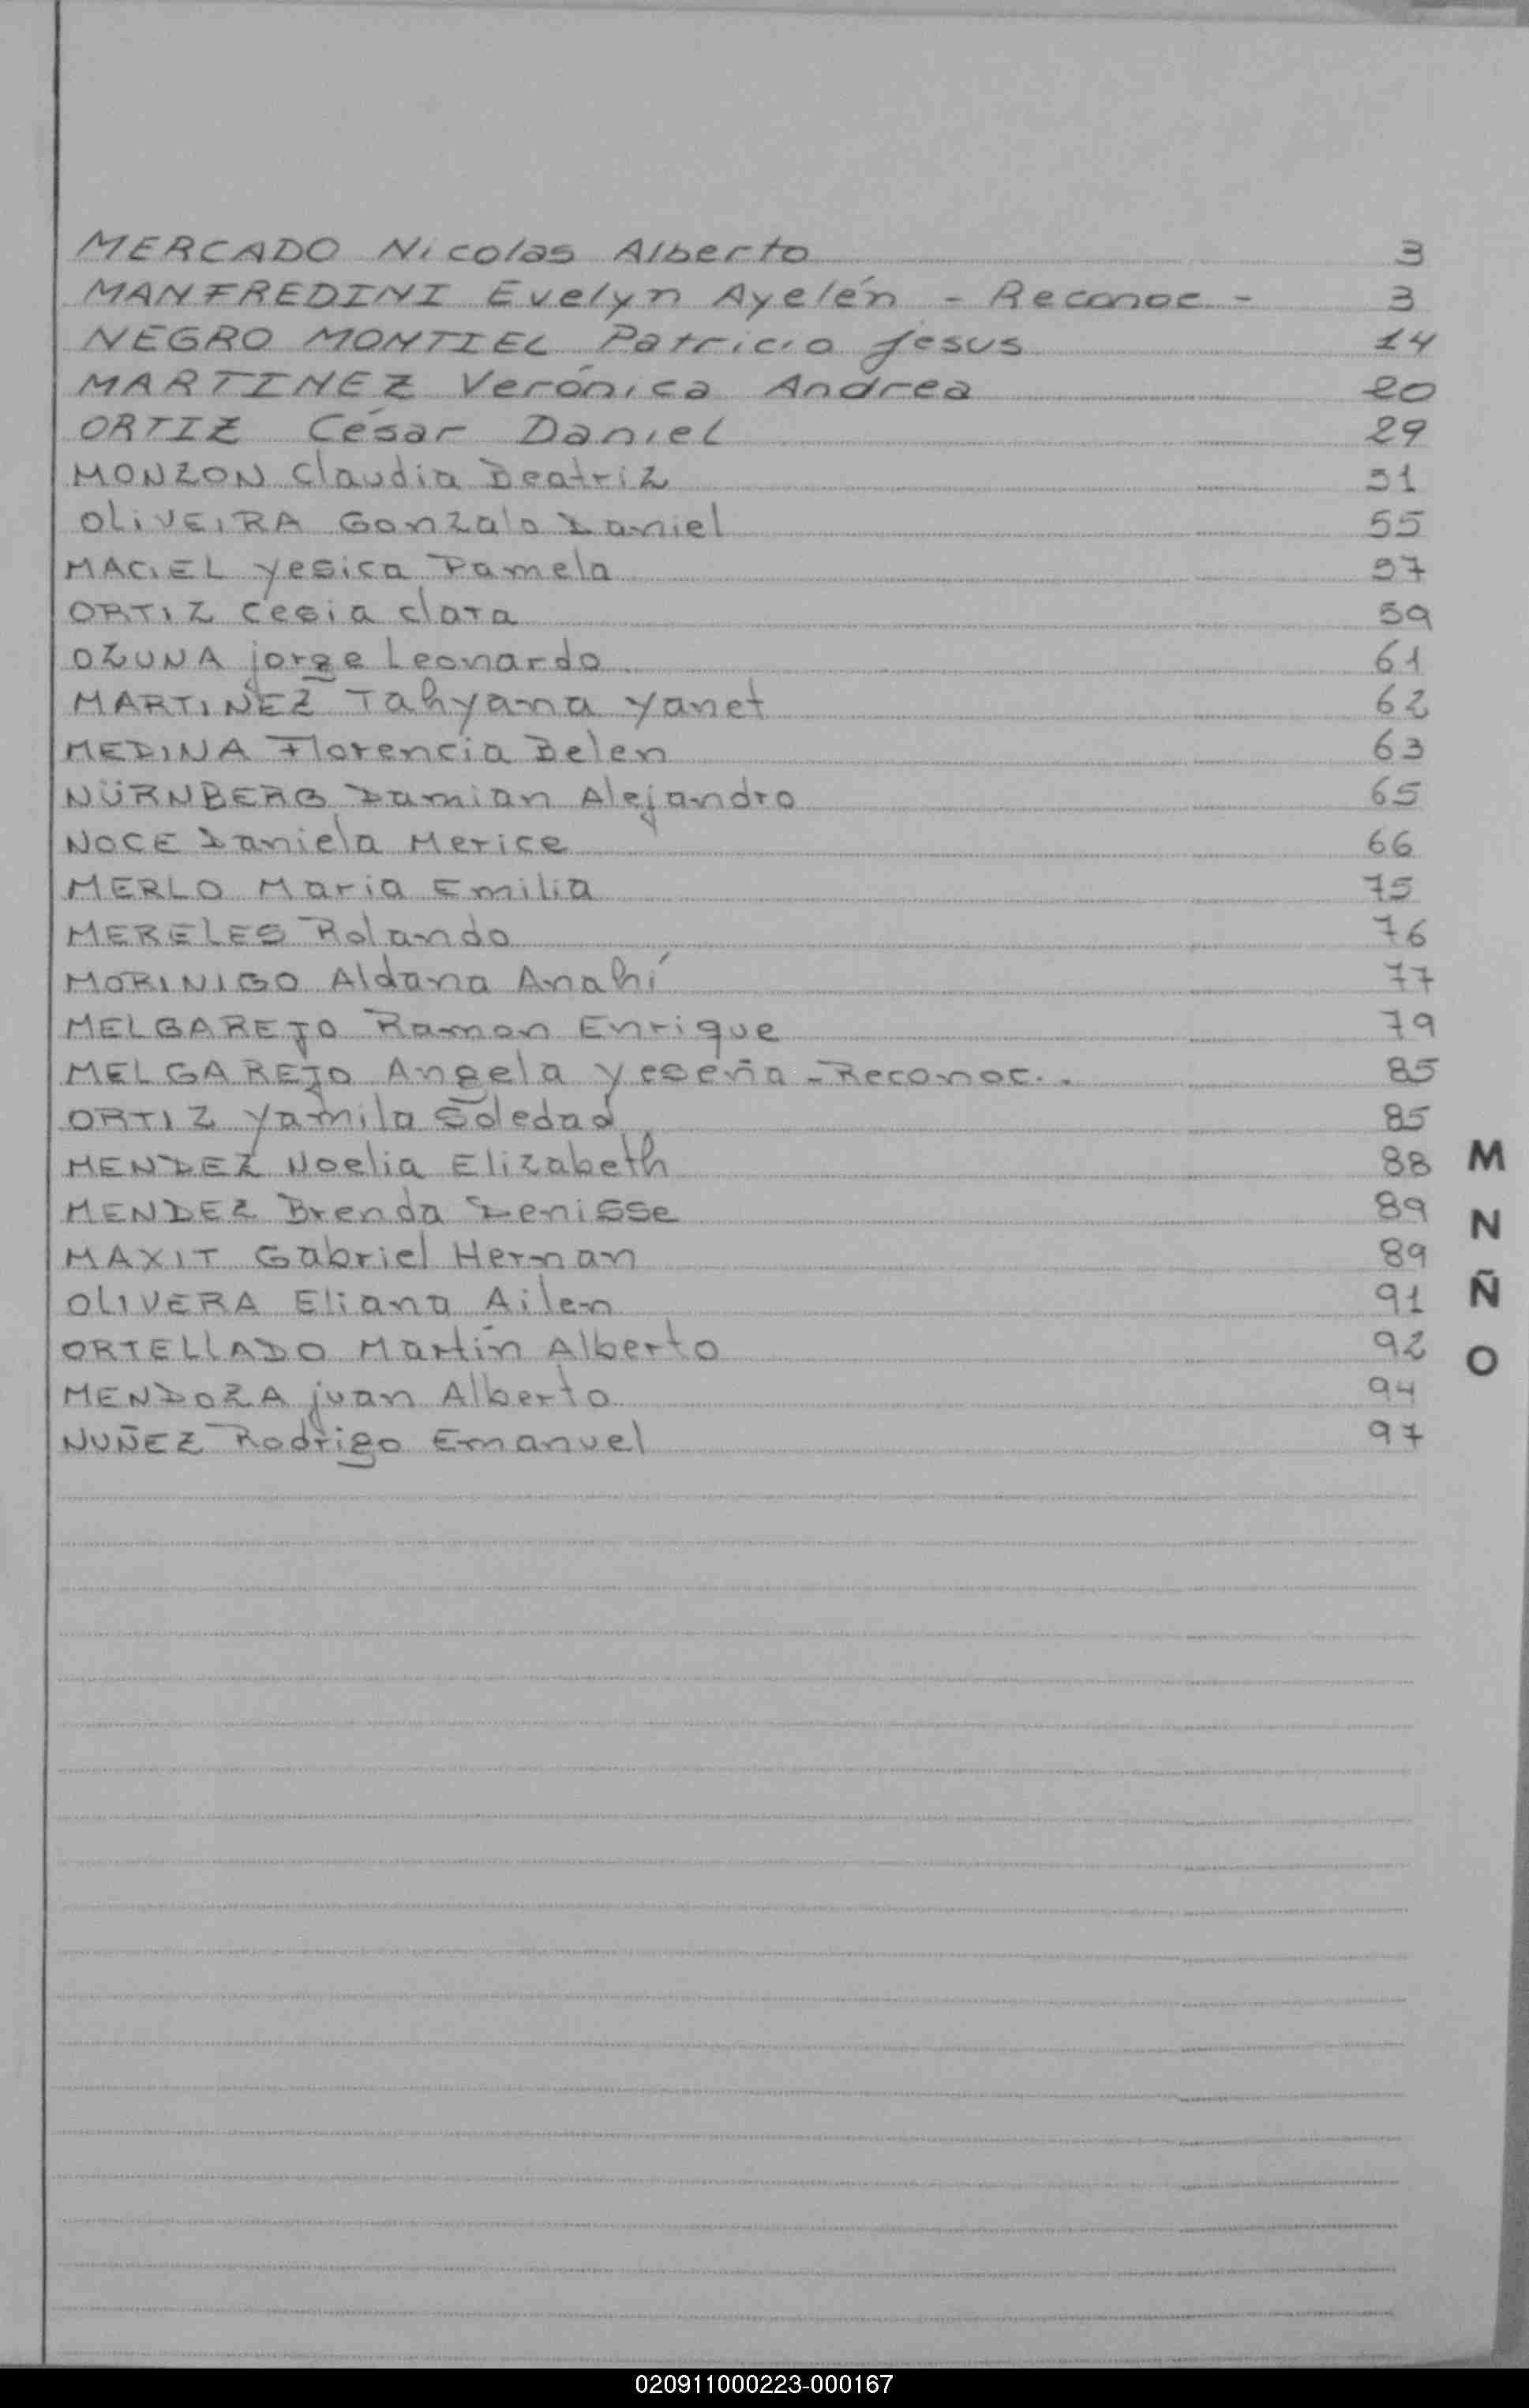 MERCADO Nicolas Alberto 3
MANFREDINI Evelyn Ayelén - Reconoc - 3
NEGRO MONTIEL Patricio Jesus 14
MARTINEZ Verónica Andrea 20
ORTIZ César Daniel 29
MONZON Claudia Beatriz 51
OLIVEIRA Gonzalo Daniel 55
MACIEL Yesica Pamela 57
ORTIZ Cesia Clara 59
OZUNA jorge Leonardo 61
MARTINEZ Tahyana Yanet 62
MEDINA Florencia Belen 63
NÜRNBERG Damian Alejandro 65
NOCE Daniela Merice 66
MERLO Maria Emilia 75
MERELES Rolando 76
MORINIGO Aldana Anahí 77
MELGAREJO Ramon Enrique 79
MELGAREJO Angela Yeseña - Reconoc. . 85
ORTIZ Yamila Soledad 85
MENDEZ Noelia Elizabeth 88
MENDEZ Brenda Denisse 89
MAXIT Gabriel Hernan 89
OLIVERA Eliana Ailen 91
ORTELLADO Martín Alberto 92
MENDOZA juan Alberto 94
NUÑEZ Rodrigo Emanuel 97
M
N
Ñ
O
020911000223-000167